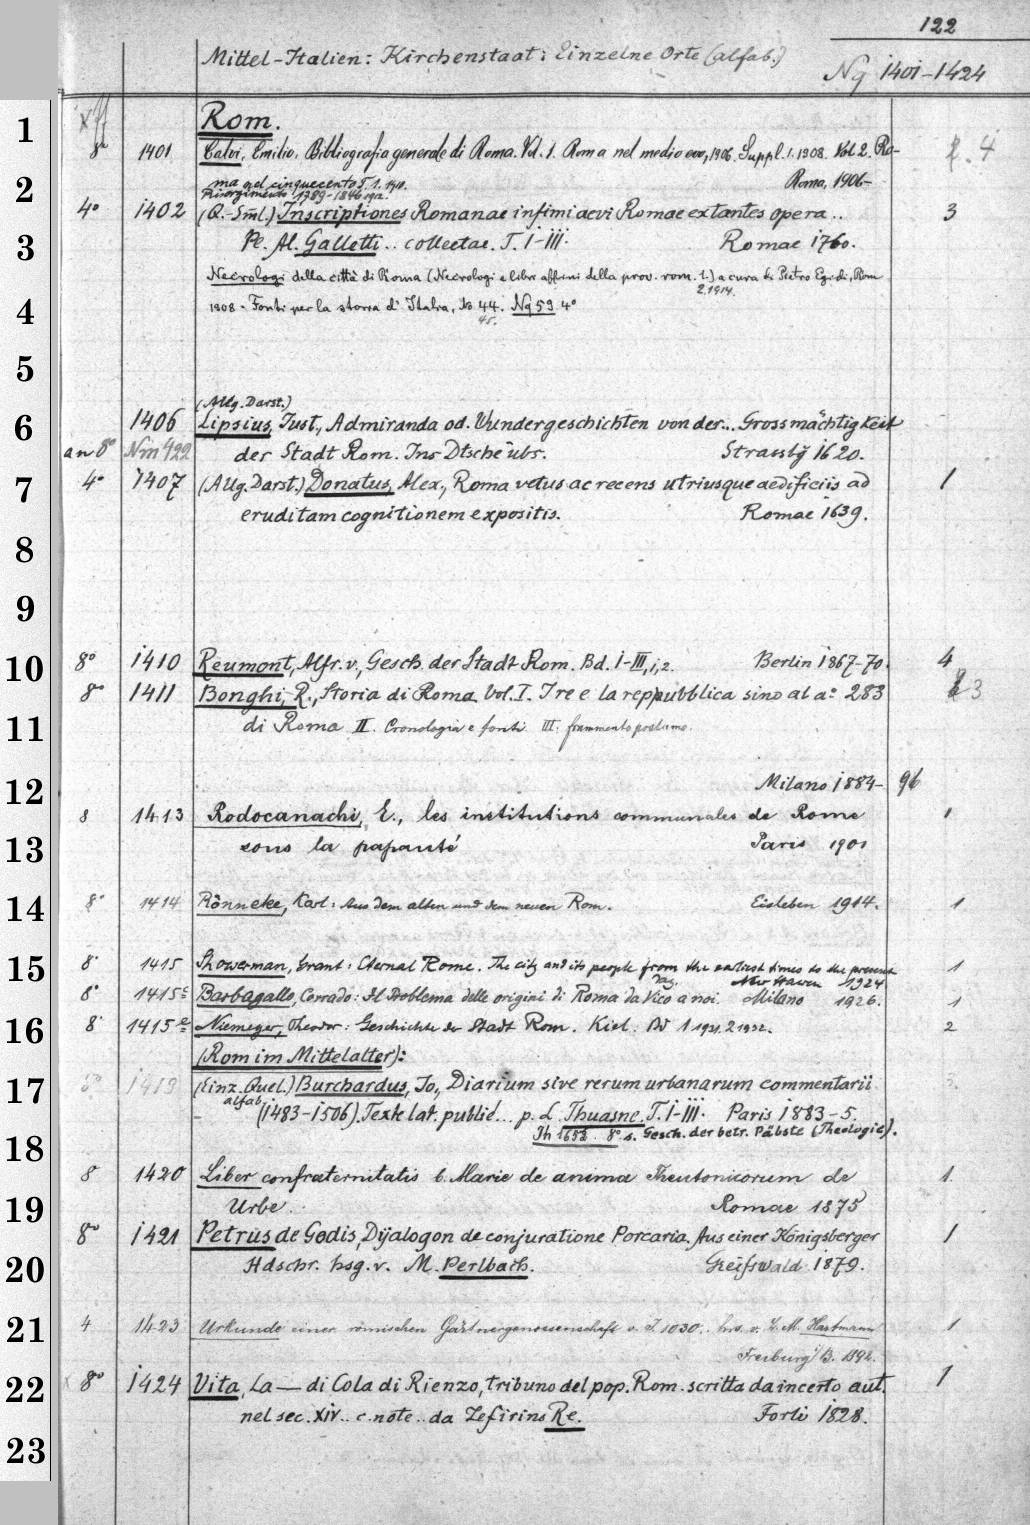 122
Mittel-Italien: Kirchenstaat: Einzelne Orte (alfab.)
Nq 1401-1424
1 Rom.
8° 1401 Calvi, Emilio. Bibliografia generale di Roma. Vol. 1. Roma nel medio evo, 1906. Suppl. 1. 1908. Vol 2. Ro- 4
2 ma nel cinquecento T. 1. 1910. Roma, 1906-
Risorgimento 1789-1846 1912.
4° 1402 (Q.-Sml.) Inscriptiones Romanae infimi aevi Romae extantes opera .. 3
3 Pe. Al. Galletti .. collectae. T. I-III. Romae 1760.
Necrologi della città di Roma (Necrologi e libri affini della prov. rom. 1.) a cura di Pietro Egidi, Rom
2. 1914.
4 1908 - Fonti per la storia d'Italia, No 44. Nq 59 4°
45.
5
(Allg. Darst.)
6 1406 Lipsius, Just., Admiranda od. Wundergeschichten von der... Grossmächtigkeit
an 8° Nm 422 der Stadt Rom. Ins Dtsche übs. Strassbg 1620.
7 4° 1407 (Allg. Darst.) Donatus, Alex., Roma vetus ac recens utriusque aedificiis ad 1
eruditam cognitionem expositis. Romae 1639.
8
9
10 8° 1410 Reumont, Alfr. v., Gesch. der Stadt Rom. Bd. I-III,1,2. Berlin 1867-70. 4
8° 1411 Bonghi, R., Storia di Roma Vol. I. I re e la reppubblica sino al a° 283 3
11 di Roma II. Cronologia e fonti III. frammento postumo.
12 Milano 1884- 96
8 1413 Rodocanachi, E., les institutions communales de Rome 1
13 sous la papauté Paris 1901
14 8° 1414 Rönneke, Karl: Aus dem alten und dem neuen Rom. Eisleben 1914. 1
15 8° 1415 Showerman, Grant: Eternal Rome. The city and its people from the earliest times to the present 1
day. New Haven 1924
8° 1415c Barbagallo, Corrado: Il Problema delle origini di Roma da Vico a noi. Milano 1926. 1
16 8° 1415e Niemeyer, Theodor: Geschichte der Stadt Rom. Kiel: Bd 1 1931. 2 1932. 2
(Rom im Mittelalter):
17 8° 1418 (Einz. Quel.) Burchardus, Jo., Diarium sive rerum urbanarum commentarii
alfab. (1483-1506). Texte lat. publié... p. L. Thuasne. T. I-III. Paris 1883-5.
Th 1652 8° s. Gesch. der betr. Päbste (Theologie).
18
8 1420 Liber confraternitatis b. Marie de anima Theutonicorum de 1.
19 Urbe. Romae 1875
8° 1421 Petrus de Godis, Dyalogon de conjuratione Porcaria. Aus einer Königsberger 1
20 Hdschr. hsg. v. M. Perlbach. Greifswald 1879.
21 4 1423 Urkunde einer römischen Gärtnergenossenschaft v. J. 1030. hrs. v. L. M. Hartmann 1
Freiburg i/B. 1892.
22 8° 1424 Vita, La — di Cola di Rienzo, tribuno del pop. Rom. scritta da incerto aut. 1
nel sec. XIV.. c. note.. da Zefirino Re. Forli 1828.
23